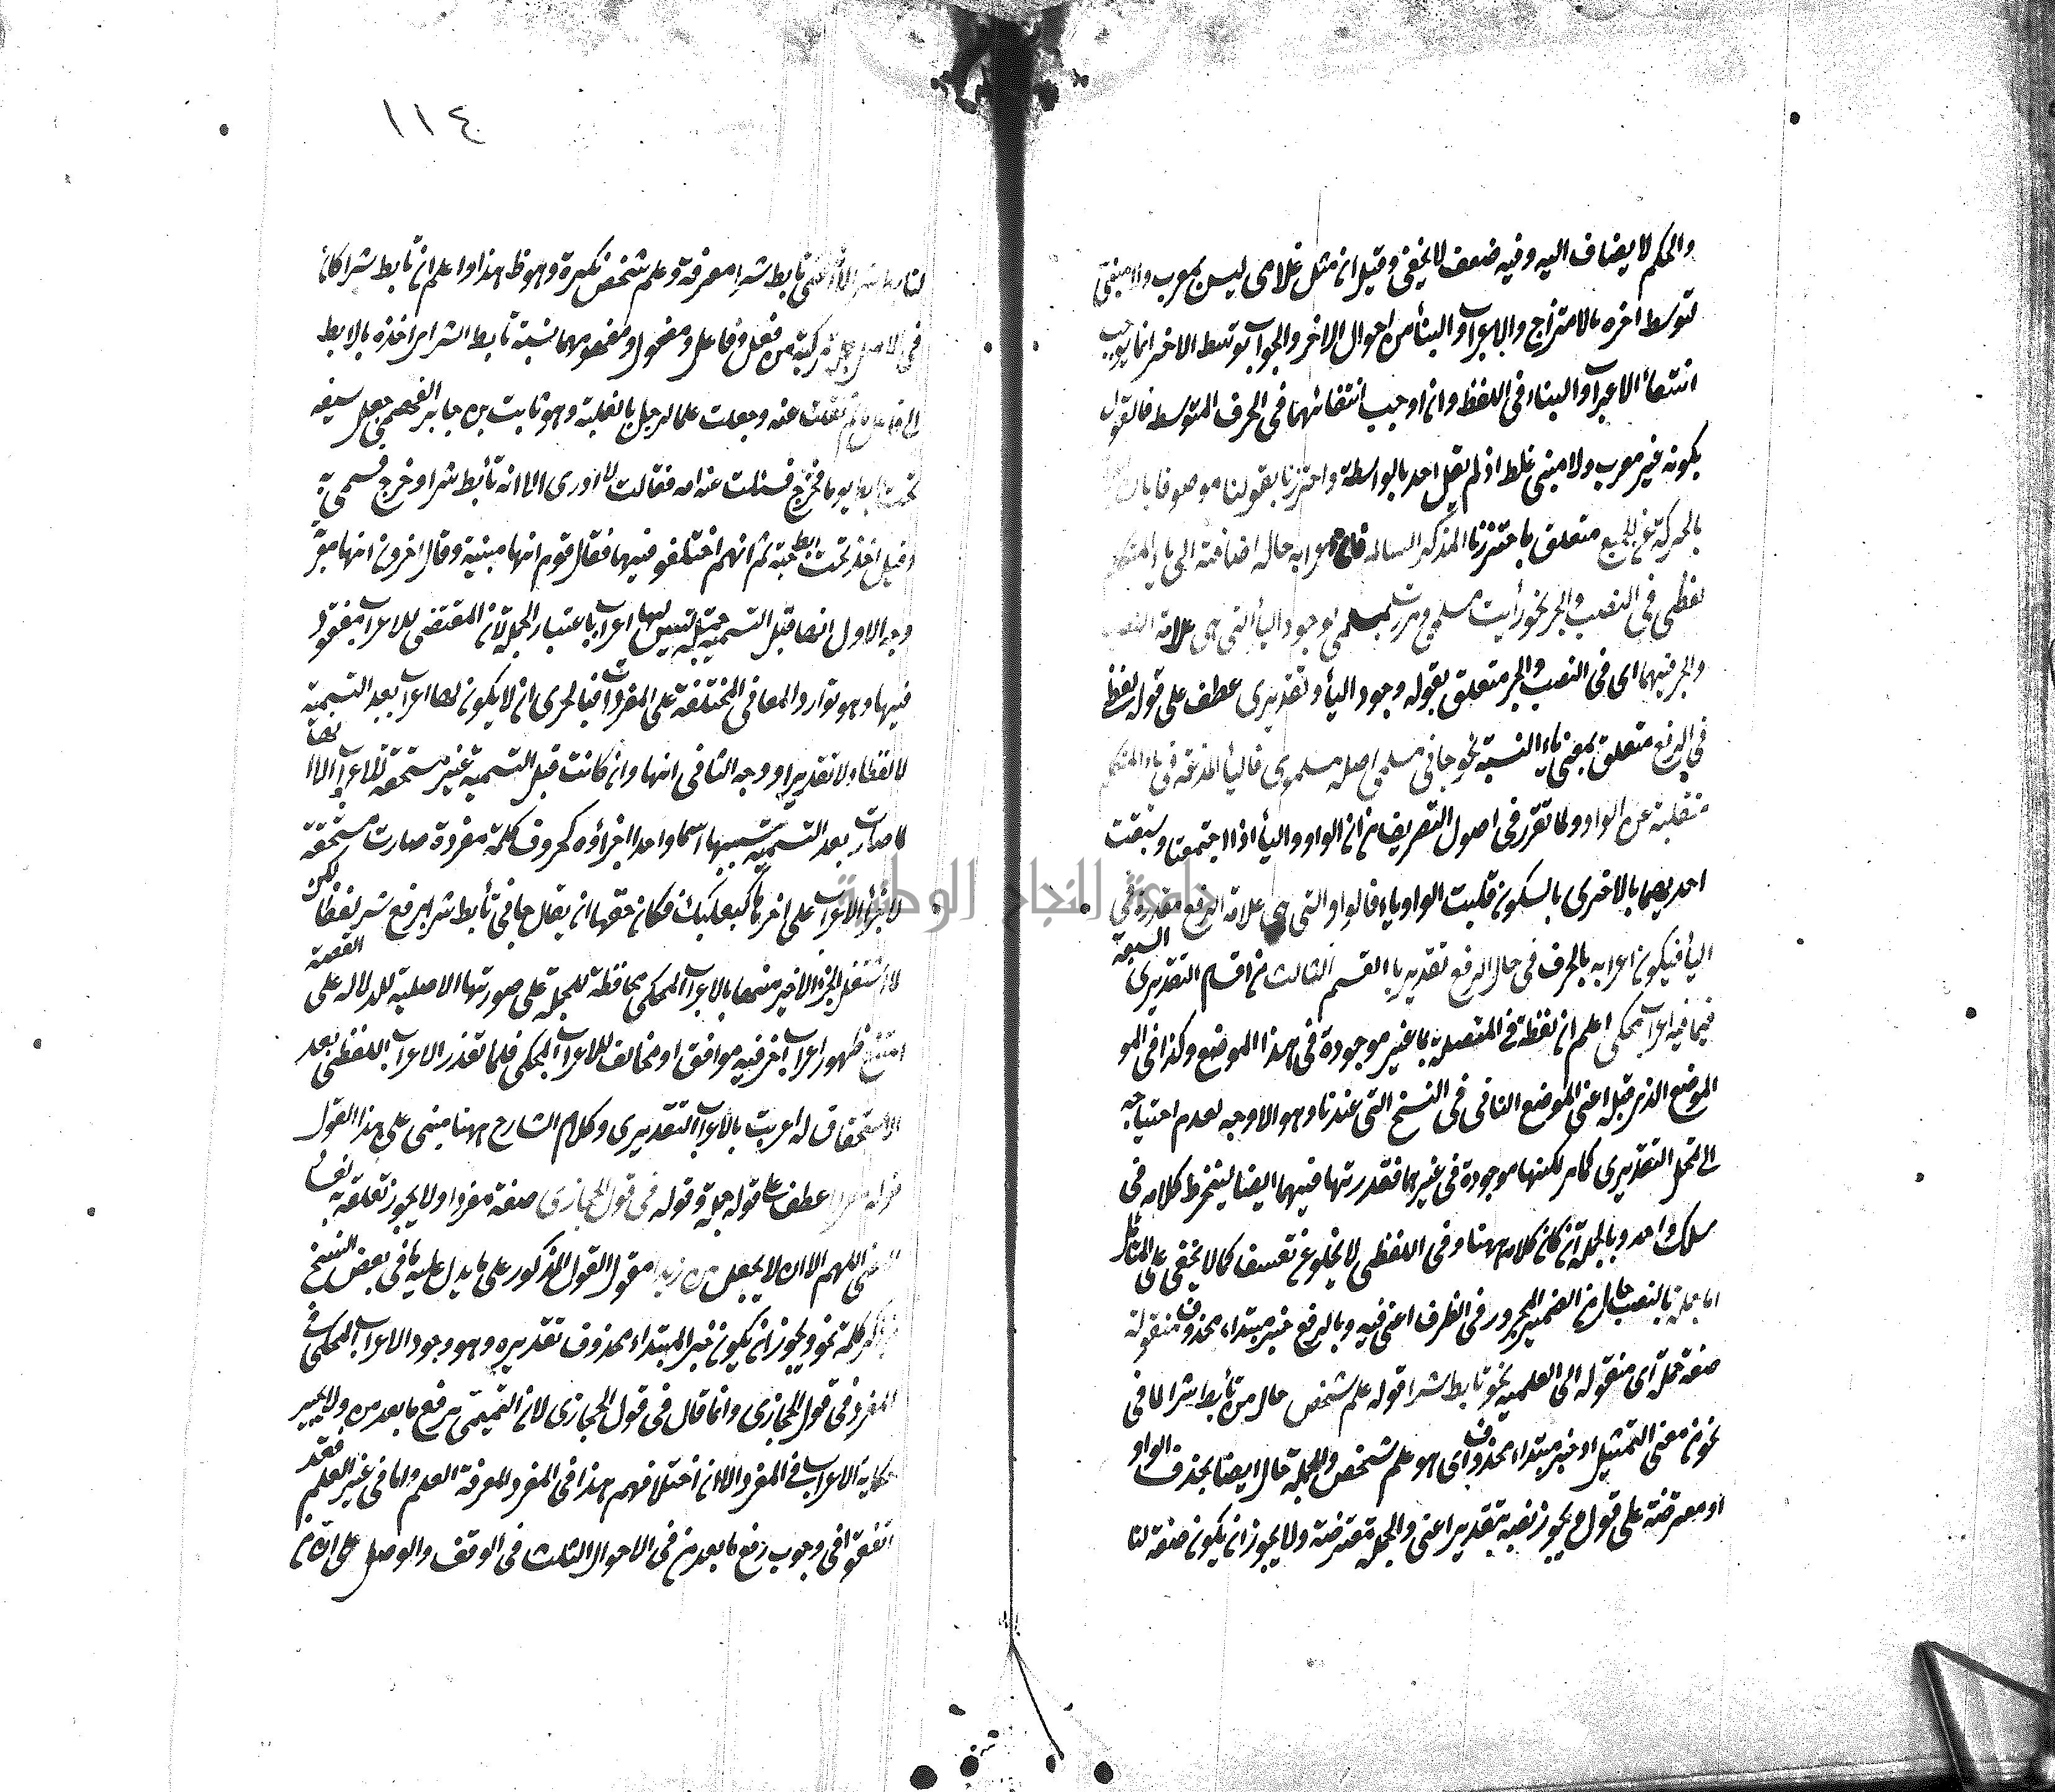 والحكم لا يضاف اليه وفيه ضعف لا يخفى وقيل ان مثل غلامى ليس بمعرب ولا مبنى
لتوسط اخره بالامتزاج والاعراب والبناء من احوال الاخر والجواب توسط الاخر انما يوجب
انتفاء الاعراب والبناء فى اللفظ وان اوجب انتفائهما فى الحرف المتوسط فالقول
بكونه غير معرب ولا مبنى غلط اذ لم يقل احد بالواسطة واحترزنا بقولنا موصوفا بان
بالحركة عن الجمع متعلق باحترزنا المذكر السالم فان اعرابه حال اضافته الى ياء المتكلم
لفظى فى النصب والجر نحو رأيت مسلمى ومررت بمسلمى لوجود الياء التى هى علامة النصب
والجر فيهما اى فى النصب والجر متعلق بقوله وجود الياء وتقديرى عطف على قوله لفظى
فى الرفع متعلق بمعنى ياء النسبة نحو جانى مسلمى اصله مسلموى فالياء المدغمة فى ياء المتكلم
منقلبة عن الواو ولما تقرر فى اصول التصريف من ان الواو والياء اذا اجتمعتا وسبقت
احديهما بالاخرى بالسكون قلبت الواو ياء فالواو التى هى علامة الرفع مقدرة فى
الياء فيكون اعرابه بالحرف فى حال الرفع تقديريا القسم الثالث من اقسام التقديرى السبعة
فيما فيه اعراب محكى اعلم ان لفظة فى المتصلة بما غير موجودة فى هذا الموضع وكذا فى المو
الموضع الذى قبله اعنى الموضع الثانى فى النسخ التى عندنا وهو الاوجه لعدم احتياجه
الى تمحل التقديرى كما مر لكنها موجودة فى غيرهما فقدرتها فيهما ايضا لينخرط كلامه فى
سلك واحد وبالجملة ان كان كلامه ههنا وفى اللفظى لا يخلو عن تعسف كما لا يخفى على المتأمل
اما جملة بالنصب حال من الضمير المجرور فى الظرف اعنى فيه وبالرفع خبر مبتداء محذوف منقولة
صفة جملة اى منقولة الى العلمية نحو تأبط شرا قوله علم شخص حال من تأبط شرا لما فى
نحو من معنى التمثيل او خبر مبتداء محذوف اى هو علم شخص والجملة حال ايضا بحذف الواو
او معترضة على قول ويجوز نصبه بتقدير اعنى والجملة معترضة ولا يجوز ان يكون صفة لنا
١١٤
تأبط شرا معرفة وعلم شخص نكرة وهو ظ هذا واعلم ان تأبط شرا كان
فى الاصل جملة مركبة من فعل وفاعل ومفعول ومفهومها نسبة تأبط الشر اى اخذه بالابط
الى فاعل ثم نقلت عنه وجعلت علما لرجل بالغلبة وهو ثابت بن جابر الفهمى جعل سيفه
تحت ابطه يوما فخرج فسئلت عنه امه فقالت لا ادرى الا انه تأبط شرا وخرج فسمى به
وقيل اخذ تحت ابطه حية ثم انهم اختلفو فيها فقال قوم انها مبنية وقال اخرون انها معر
وجه الاول انها قبل التسمية جملة ليس لها اعراب باعتبار الجملة لان المقتضى للاعراب مفقود
فيها وهو توارد المعانى المختلفة على المفردات فبالحرى ان لا يكون لها اعراب بعد التسمية
لا لفظا ولا تقديرا ووجه الثانى انها وان كانت قبل التسمية غير مستحقة للاعراب الا انها
لما صارت بعد التسمية بسببها اسما واحدا اجزاؤه كحروف كلمة مفردة صارت مستحقة
لاجراء الاعراب على اخرها كبعلبك فكان حقها ان يقال جانى تأبط شر برفع شر لفظا لكن
لما اشتغل الجزء الاخير منها بالاعراب المحكى محافظة للجملة على صورتها الاصلية للدلالة على القصة
امتنع ظهور اعراب اخر فيه موافق او مخالف للاعراب المحكى فلما تعذر الاعراب اللفظى بعد
الاستحقاق له اعربت بالاعراب التقديرى وكلام الشارح ههنا مبنى على هذا القول
قوله عطف على قوله جملة وقوله فى قول الحجازى صفة مفردا ولا يجوز تعلقه به لفساد
المعنى اللهم الا ان لا يجعل من زيدا مقول القول المذكور على ما يدل عليه ما فى بعض النسخ
كلمة نحو ويجوز ان يكون خبر المبتداء محذوف تقديره وهو وجود الاعراب المحكى فى
المفرد فى قول الحجازى وانما قال فى قول الحجازى لان التميمى يرفع ما بعد من ولا يجيز
حكاية الاعراب فى المفرد الا ان اختلافهم هذا فى المفرد لمعرفة العلم واما فى غير العلم فقد
اتفقوا فى وجوب رفع ما بعد من فى الاحوال الثلث فى الوقف والوصل على ان من
جامعة النجاح الوطنية